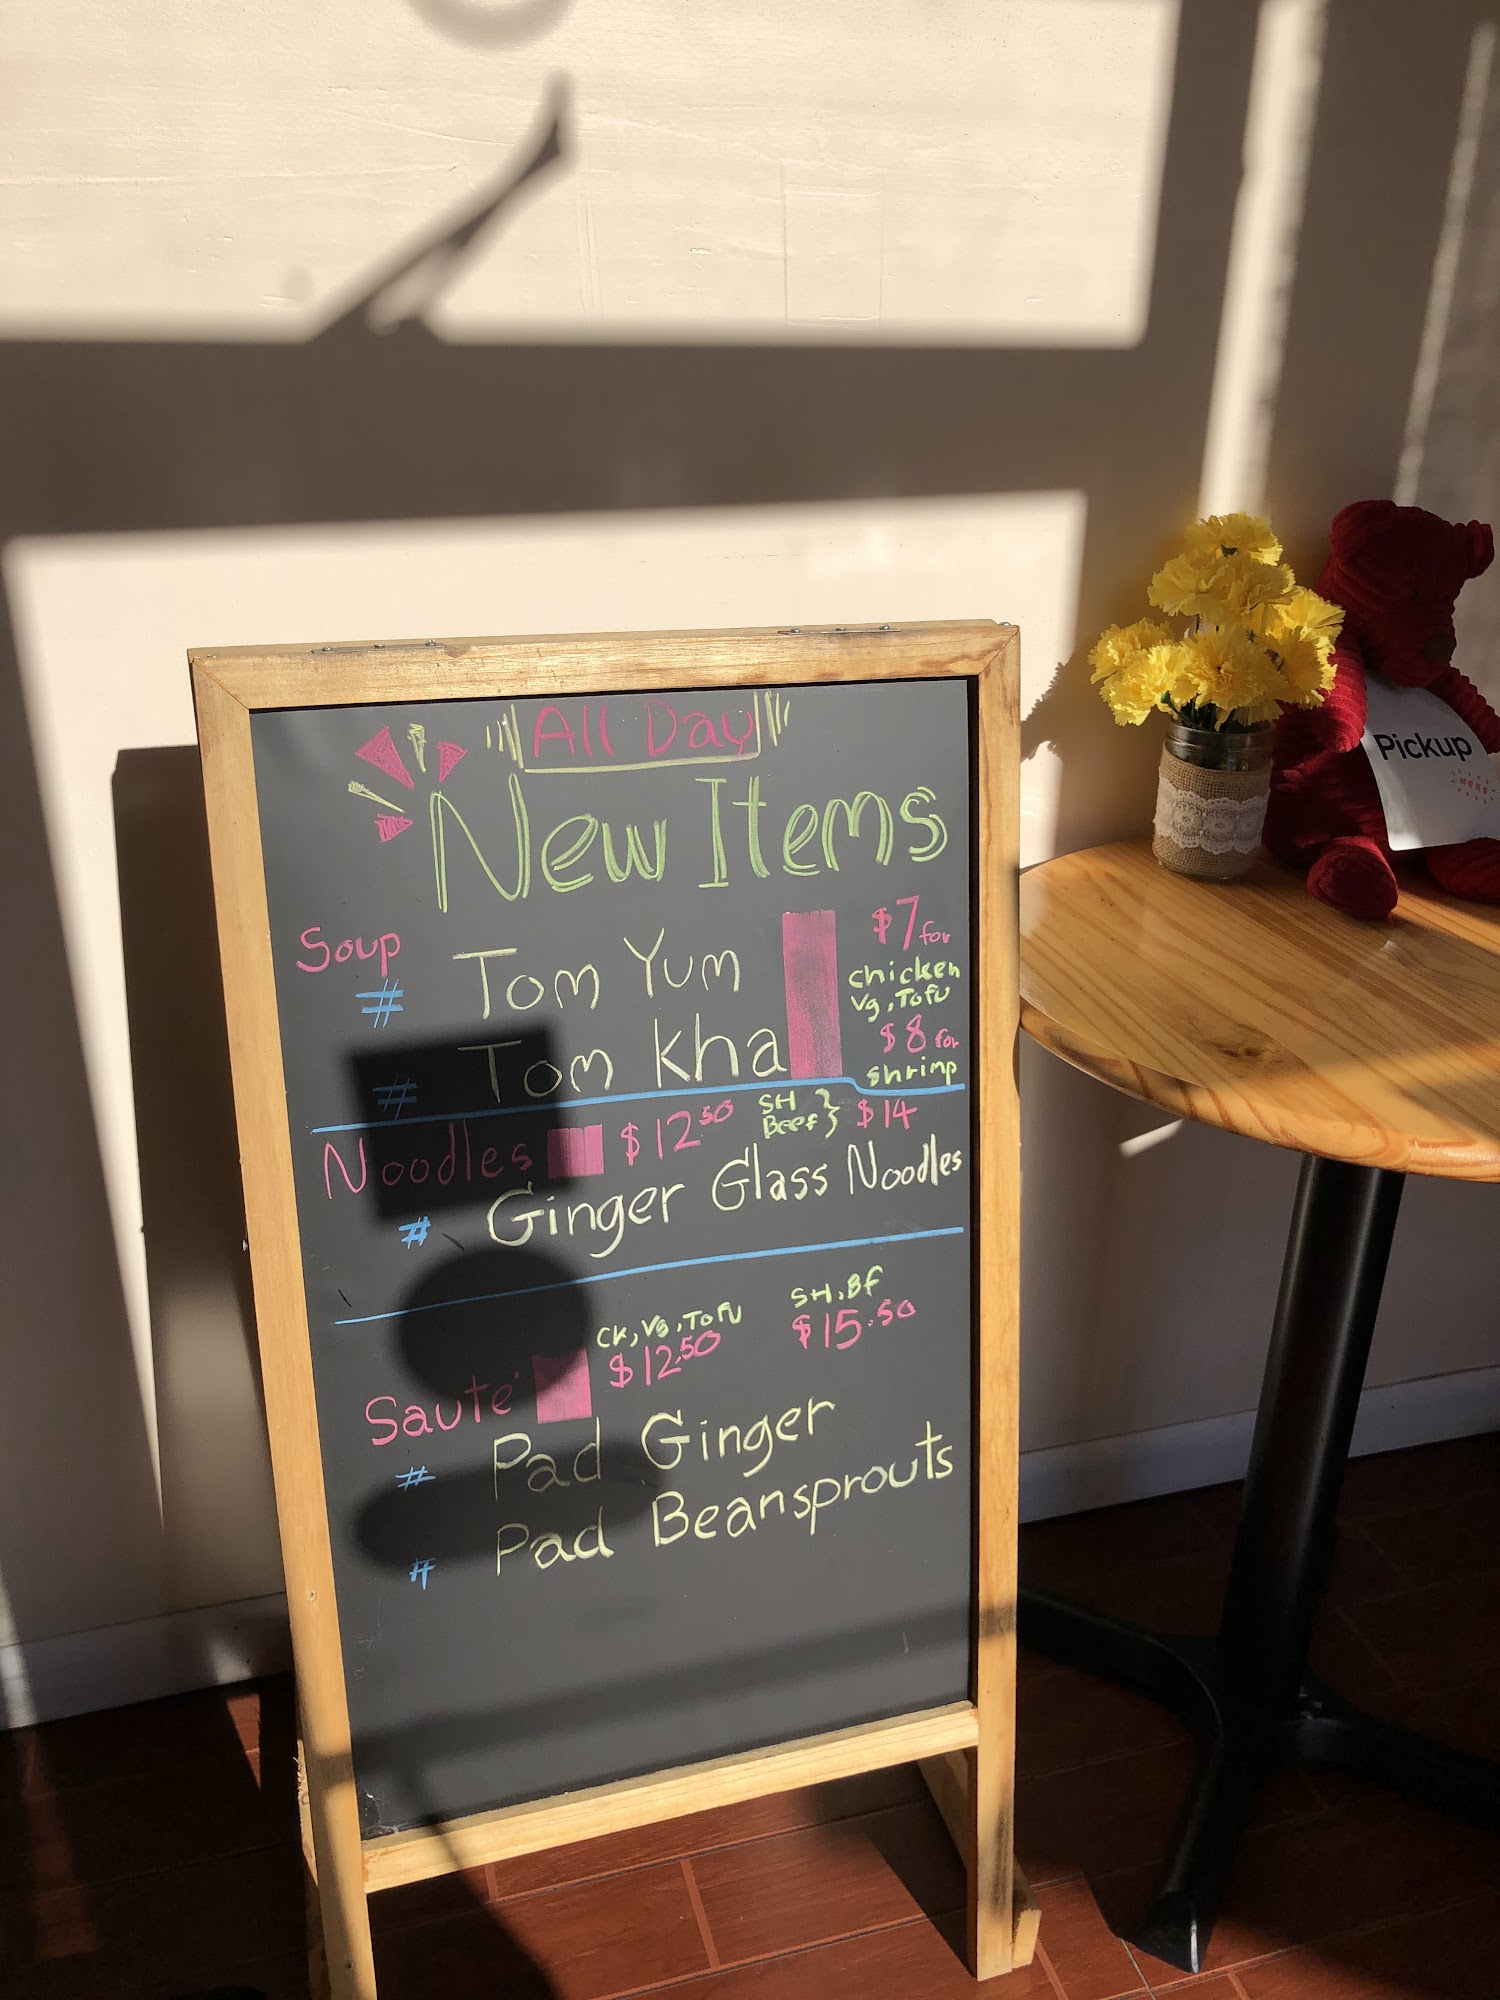 All Day
New Items
Soup
# Tom Yum
# Tom Kha
$7 for
chicken
Vg, Tofu
$8 for
shrimp
Noodles $12.50 SH Beef } $14
# Ginger Glass Noodles
Ck, Vg, Tofu SH, Bf
Sauté $12.50 $15.50
# Pad Ginger
# Pad Beansprouts
Pickup
HERE